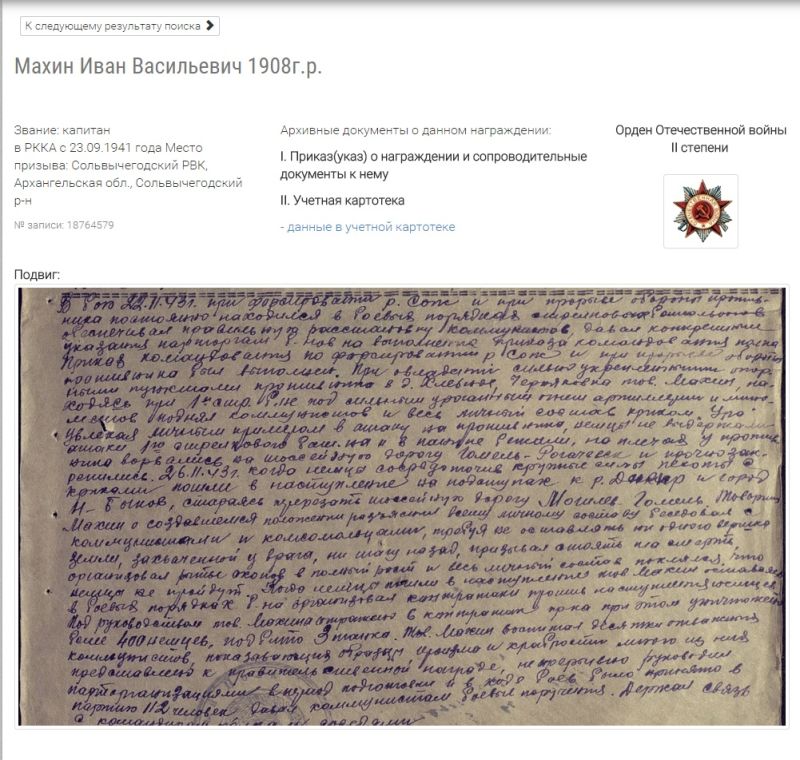 К следующему результату поиска
Махин Иван Васильевич 1908г.р.
Звание: капитан
в РККА с 23.09.1941 года Место
призыва: Сольвычегодский РВК,
Архангельская обл., Сольвычегодский
р-н
№ записи: 18764579
Архивные документы о данном награждении:
I. Приказ(указ) о награждении и сопроводительные
документы к нему
II. Учетная картотека
- данные в учетной картотеке
Орден Отечественной войны
II степени
Подвиг:
22.11.43г. при форсировании р. Сож и при прорыве обороны против-
ника постоянно находился в боевых порядках стрелковых батальонов
обеспечивал правильную расстановку коммунистов, давал конкретные
указания парторгам б-нов на выполнение приказа командования полка
Приказ командования по форсированию р Сож и при прорыве обороны
противника был выполнен. При овладении сильно укрепленными опор-
ными пунктами противника в д. Хлевно, Черняховка тов. Махин, на-
ходясь при 1 стр. б-не под сильным ураганным огнем артиллерии и мино-
метов поднял коммунистов и весь личный состав криком. Ура
увлекая личным примером в атаку на противника, немцы не выдержали
атаки 1го стрелкового бат-на и в панике бежали, на плечах у против
ника ворвались на шоссейную дорогу Гомель-Рогачевск и прочно зак-
репились. 26.11.43г. когда немцы сосредоточив крупные силы пехоты с
пошли в наступление на подступах к р. Днепр и город
Н-Быхов, стараясь перерезать шоссейную дорогу Могилев Гомель. Товарищ
Махин о создавшемся положении разъяснил всему личному составу беседовал с
коммунистами и комсомольцами, требуя не оставлять ни одного вершка
земли, захваченной у врага, ни шагу назад, призывал стоять на смерть,
организовал рытье окопов в полный рост и весь личный состав поклялся, что
немцы не пройдут. Когда немцы пошли в наступление тов Махин оставаясь
в боевых порядках б-на организовал контратаки против наступающих немцев
Под руководством тов. Махина отражено контратак при этом уничтожено
более 400 немцев, подбито 3 танка. Тов. Махин воспитал десятки отважных
коммунистов, показавших образцы героизма и храбрости много из них
представлено к правительственной награде, непрерывно руководил
парторганизациями в период подготовки и в ходе боев было принято в
партию 112 человек давал коммунистам боевые поручения. Держал связь
с командирами